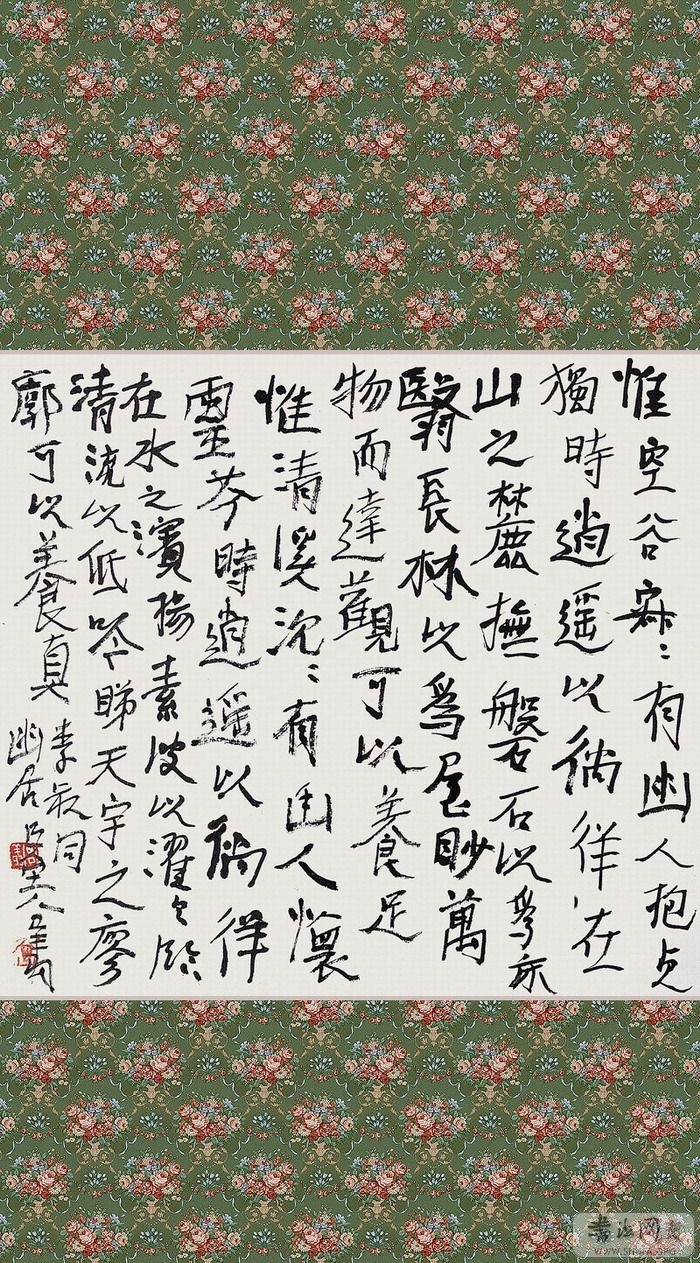 惟空谷寂〻有幽人抱貞
獨時逍遙以徜徉在
山之麓撫磐石以為床
翳長林以為屋眇萬
物而達觀可以養足
惟清溪沈〻有幽人懷
靈芬時逍遙以徜徉
在水之濱揚素波以濯足臨
清流以低吟睇天宇之寥
廓可以養真
李叔同
幽居
书法网
WWW.SHUFA.ORG